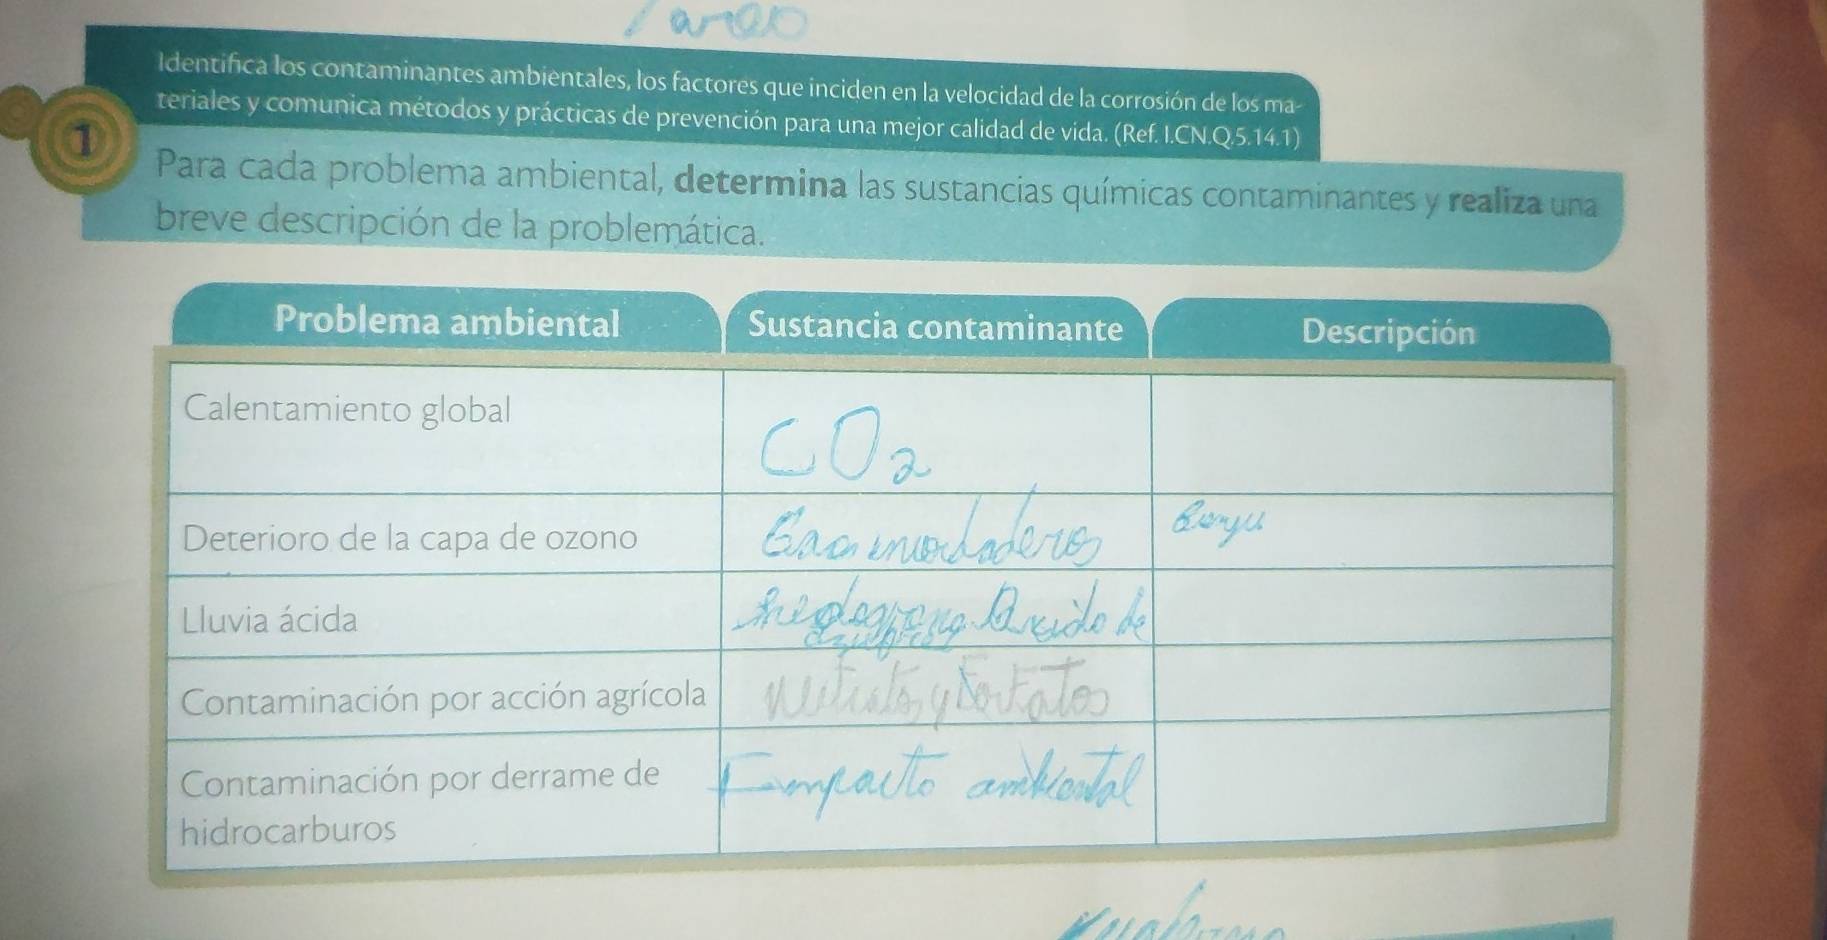 Tarea
Identifica los contaminantes ambientales, los factores que inciden en la velocidad de la corrosión de los ma-
teriales y comunica métodos y prácticas de prevención para una mejor calidad de vida. (Ref. I.CN.Q.5.14.1)
1
Para cada problema ambiental, determina las sustancias químicas contaminantes y realiza una
breve descripción de la problemática.
Problema ambiental
Sustancia contaminante
Descripción
Calentamiento global
CO2
Deterioro de la capa de ozono
Lluvia ácida
de
Contaminación por acción agrícola
y
Contaminación por derrame de
hidrocarburos
ambiental